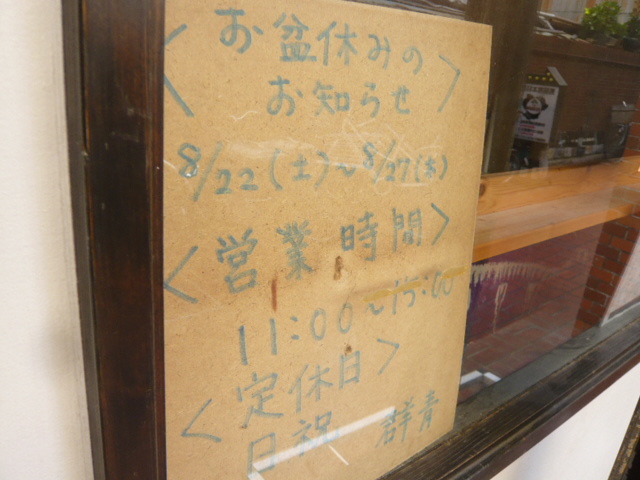 〈お盆休みの
お知らせ〉
8/22(土)~8/27(木)
〈営業時間〉
11:00~15:00
〈定休日〉
日祝 群青